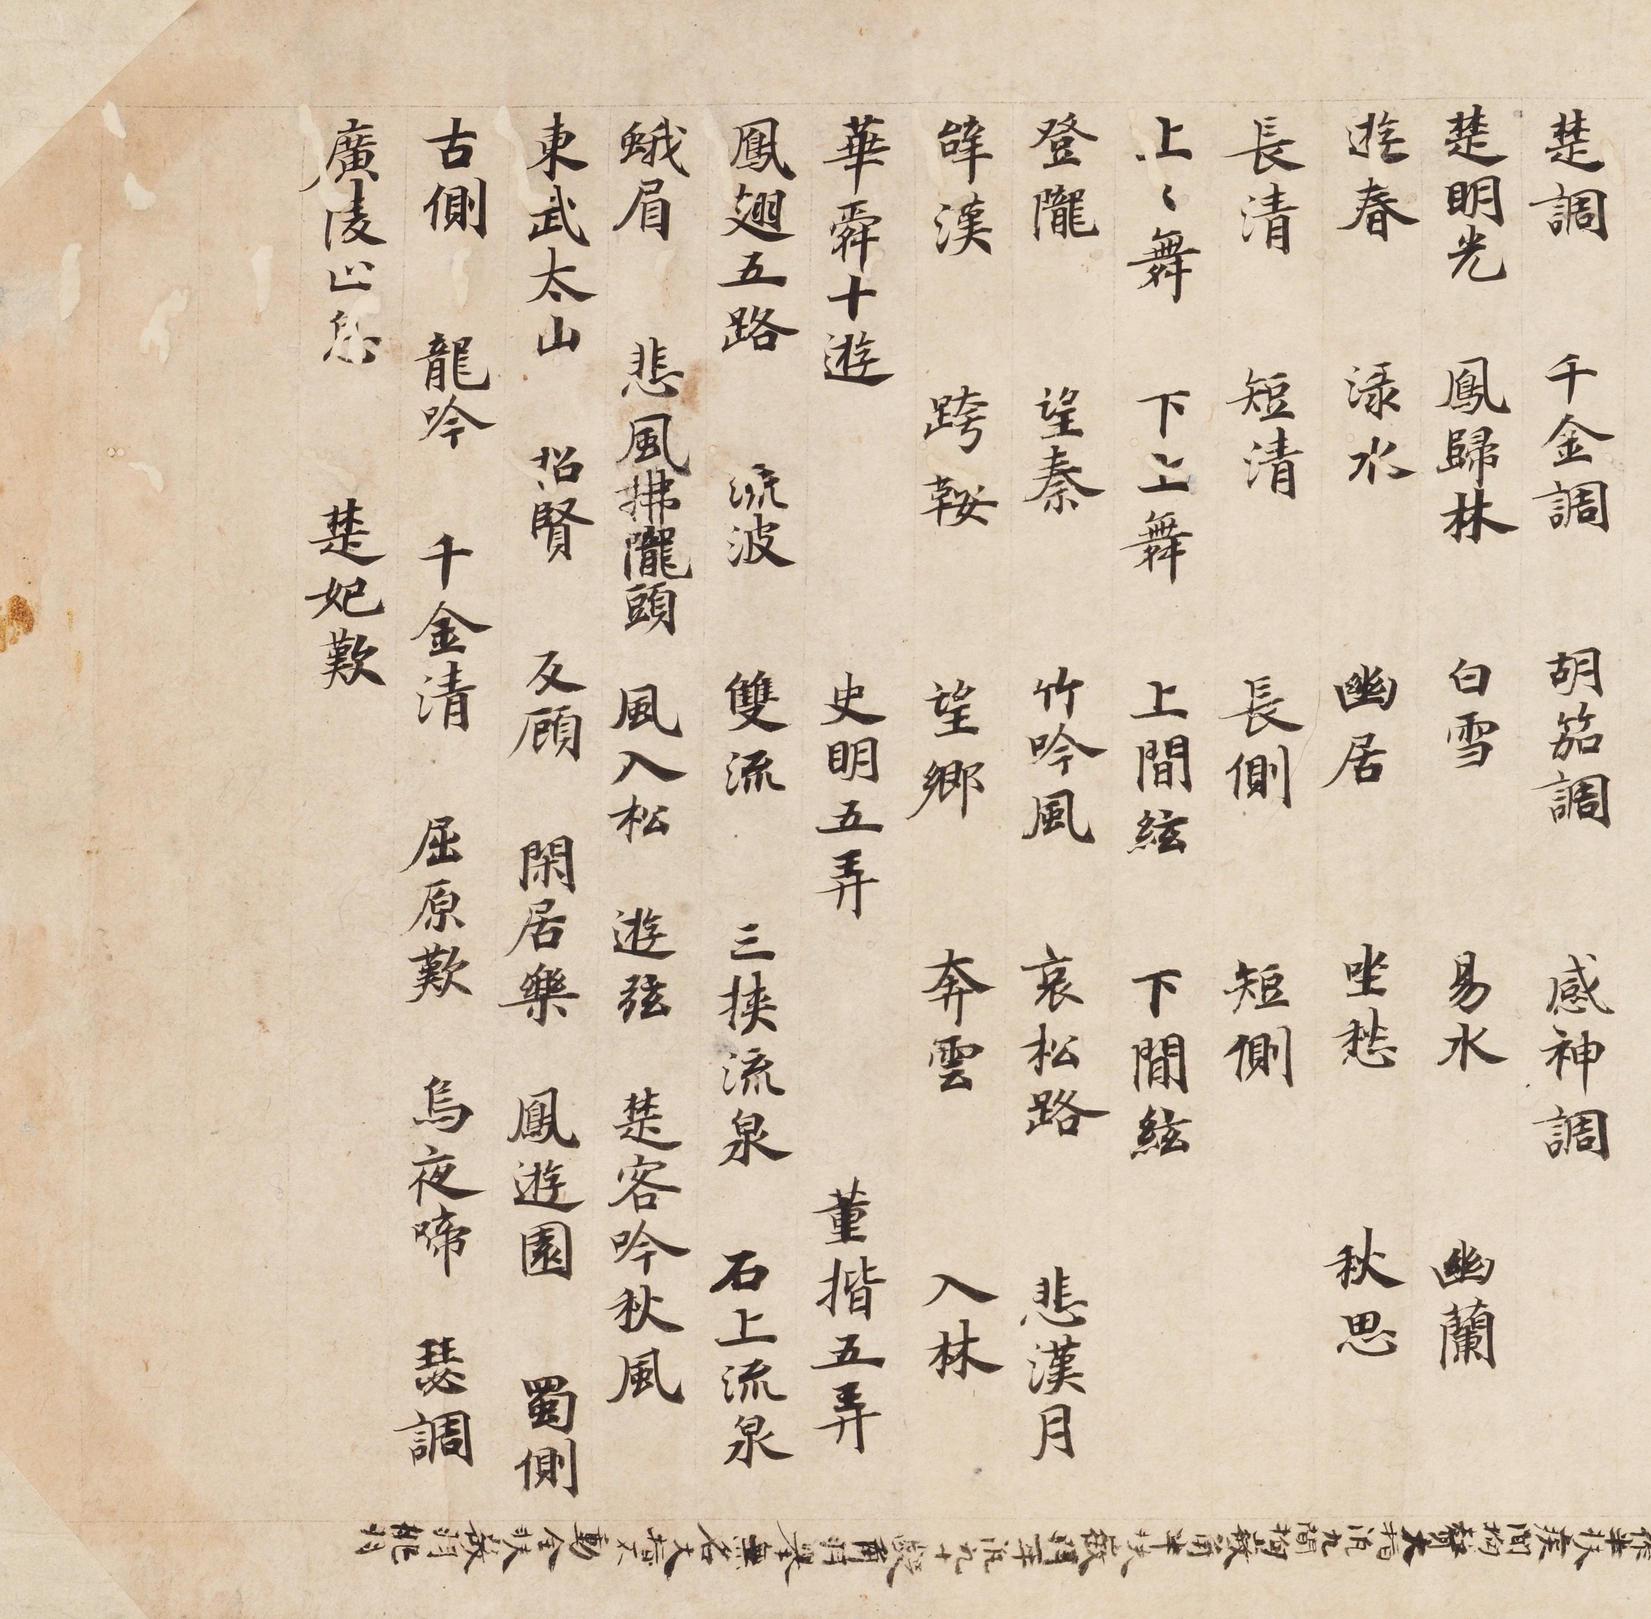 楚調 千金調 胡笳調 感神調
楚明光 鳳歸林 白雪 易水 幽蘭
遊春 淥水 幽居 坐愁 秋思
長清 短清 長側 短側
上〻舞 下上舞 上間絃 下間絃
登隴 望秦 竹吟風 哀松路 悲漢月
辝漢 跨鞍 望鄉 奔雲 入林
華舜十遊 史明五弄 董揩五弄
鳳翅五路 流波 雙流 三挾流泉 石上流泉
蛾眉 悲風拂隴頭 風入松 遊弦 楚客吟秋風
東武太山 招賢 反顧 閑居樂 鳳遊園 蜀側
古側 龍吟 千金清 屈原歎 烏夜啼 瑟調
廣陵止息 楚妃歎